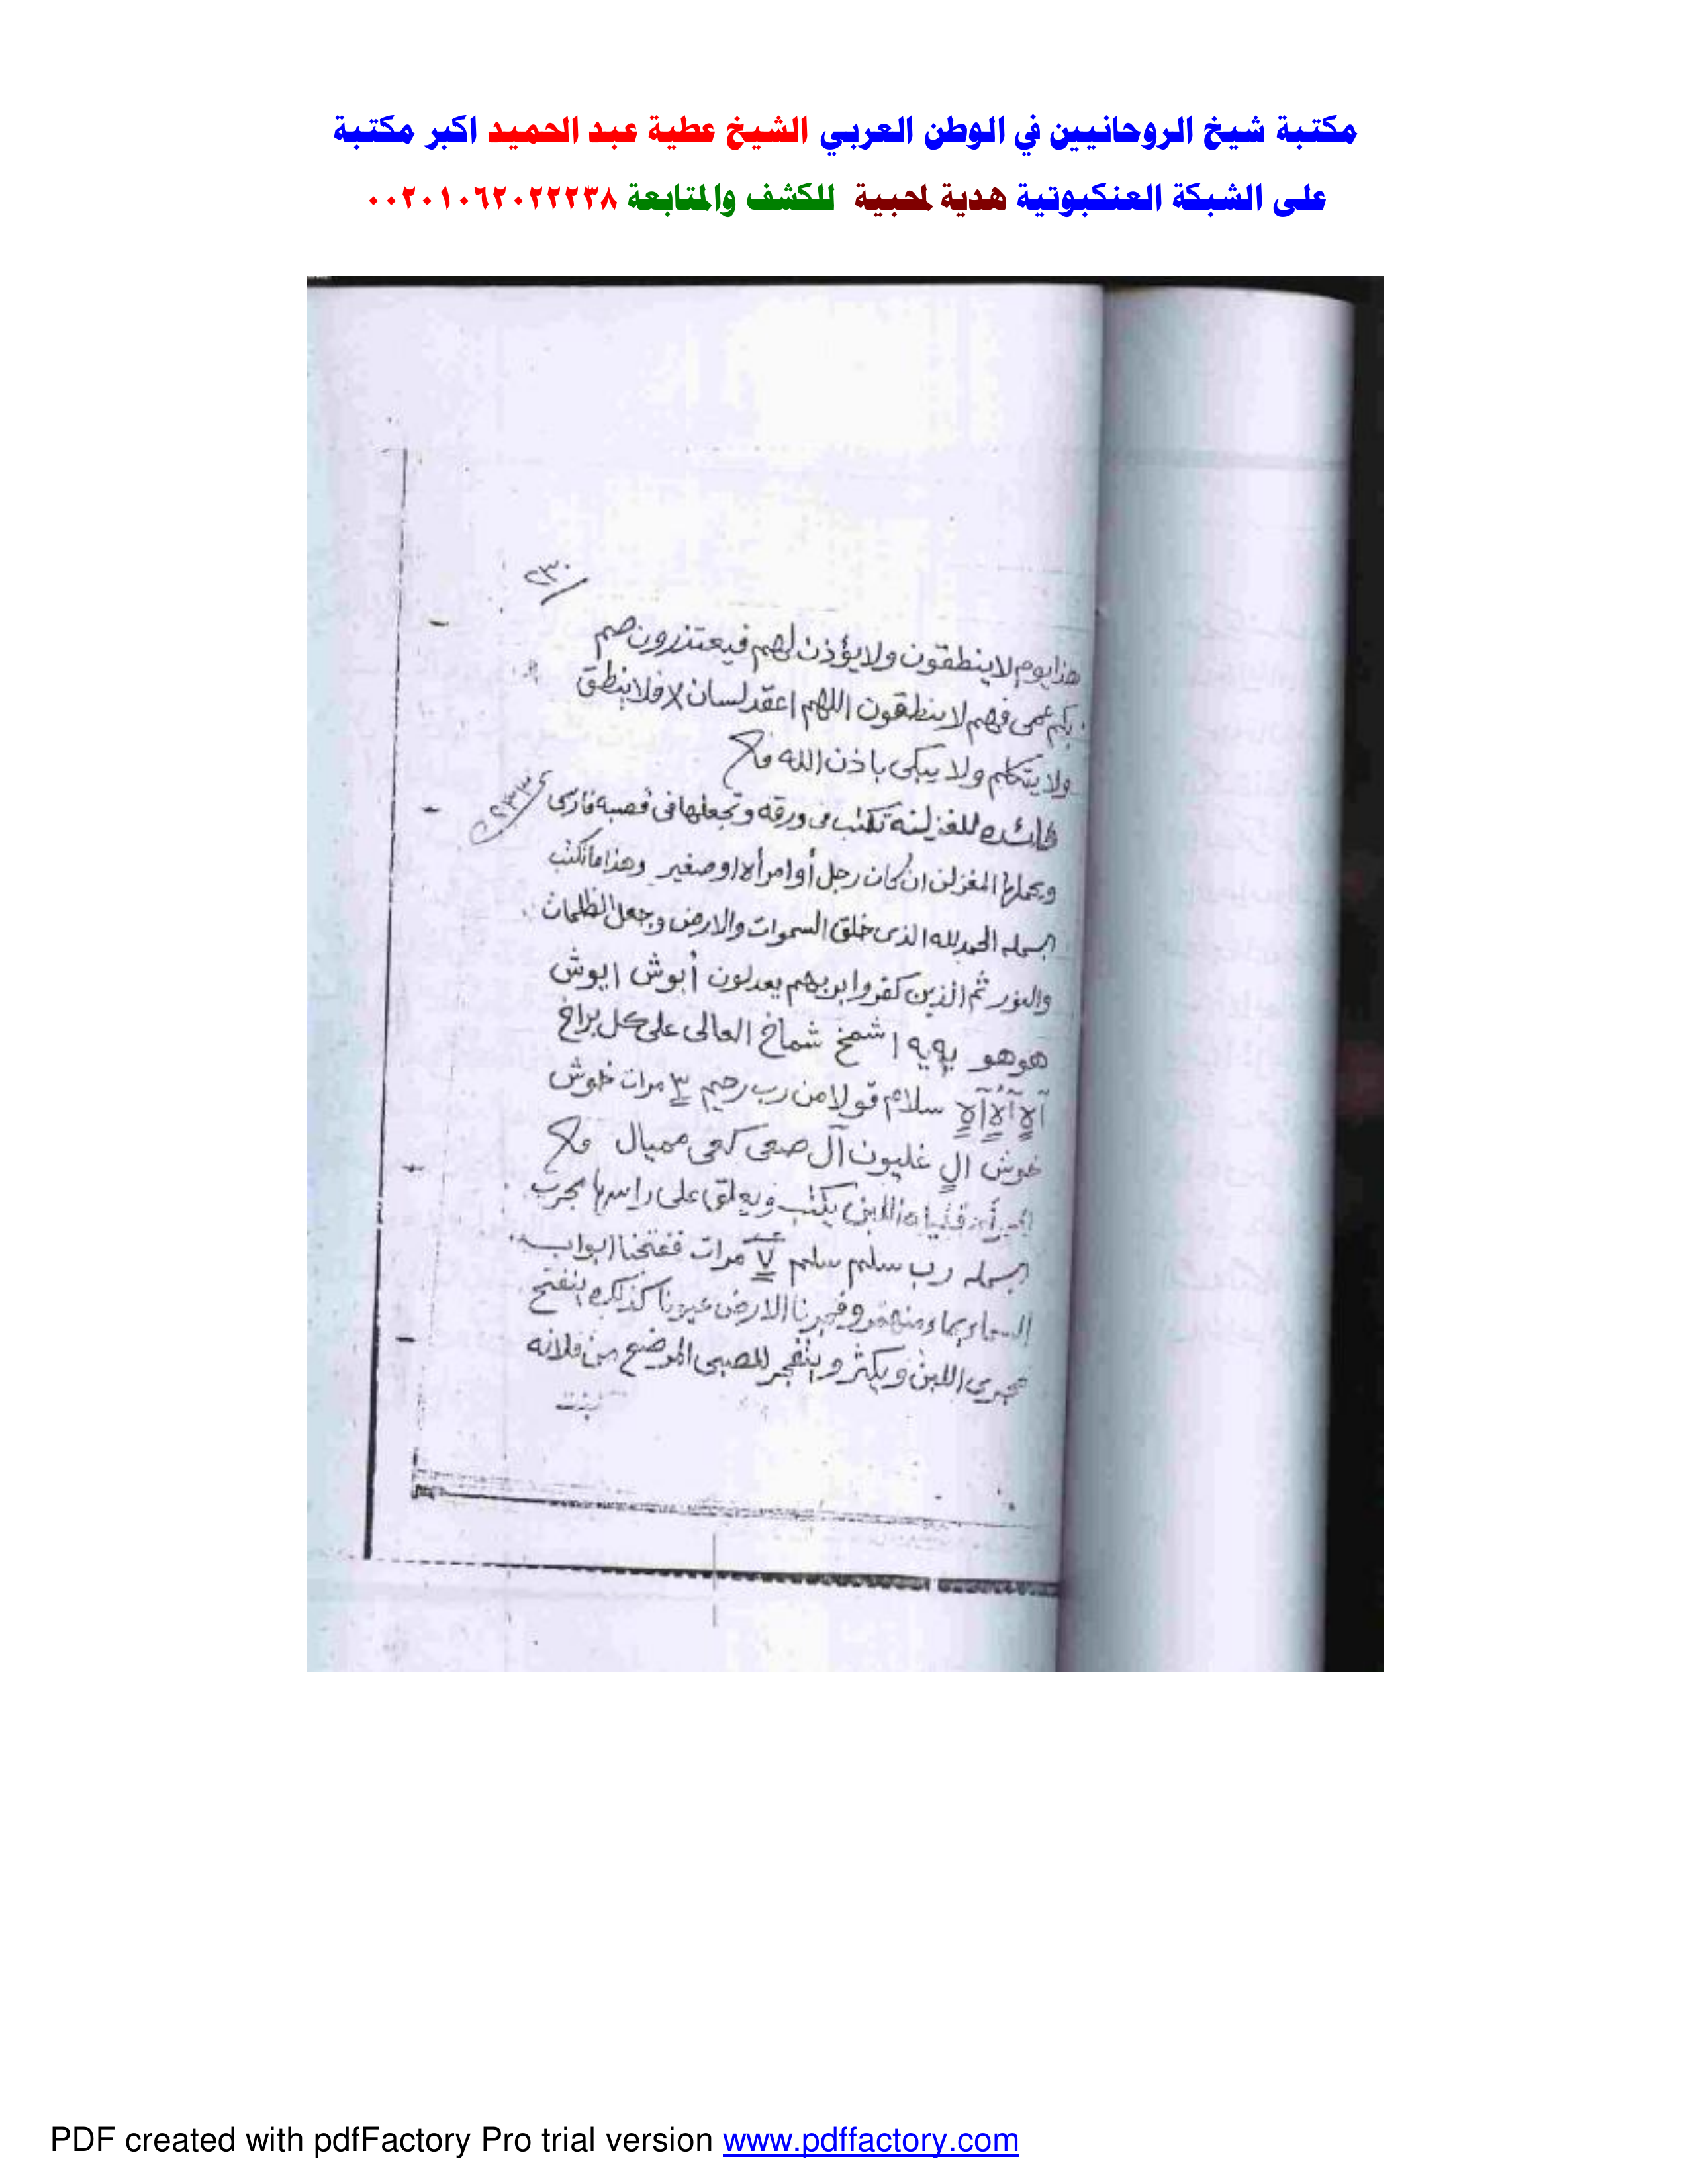 مكتبة شيخ الروحانيين في الوطن العربي الشيخ عطية عبد الحميد اكبر مكتبة
على الشبكة العنكبوتية هدية لمحبية للكشف والمتابعة ٠٠٢٠١٠٦٢٠٢٢٢٣٨
٢٣٠
هذا يوم لا ينطقون ولا يؤذن لهم فيعتذرون صم
بكم عمى فهم لا ينطقون اللهم اعقد لسان فلا ينطق
ولا يتكلم ولا يبكى باذن الله
فائده تكتب فى ورقه وتجعلها فى قصبه فارسى
ويحملها ان كان رجل أو امرأة او صغير وهذا ما تكتب
البسمله الحمد لله الذى خلق السموات والارض وجعل الظلمات
والنور ثم الذين كفروا بربهم يعدلون أبوش ابوش
هو هو يه يه اشمخ شماخ العالى على كل براخ
سلام قولا من رب رحيم ٣ مرات خوش
خوش ال غليون آل صعى كعى مميال
اللبن يكتب ويعلق على راسها مجرب
البسمله رب سلم سلم ٧ مرات ففتحنا ابواب
السماء بماء منهمر وفجرنا الارض عيونا كذلك ينفتح
مجرى اللبن ويكثر وينفجر للصبى الموضع من فلانه
بنت
PDF created with pdfFactory Pro trial version www.pdffactory.com